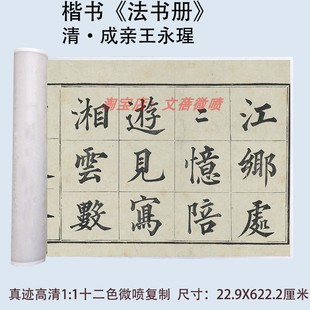 楷书《法书册》
清·成亲王永瑆
淘宝店：文蓓微喷
江鄉處
二憶陪
遊見寫
湘雲數
真迹高清1:1十二色微喷复制 尺寸：22.9X622.2厘米